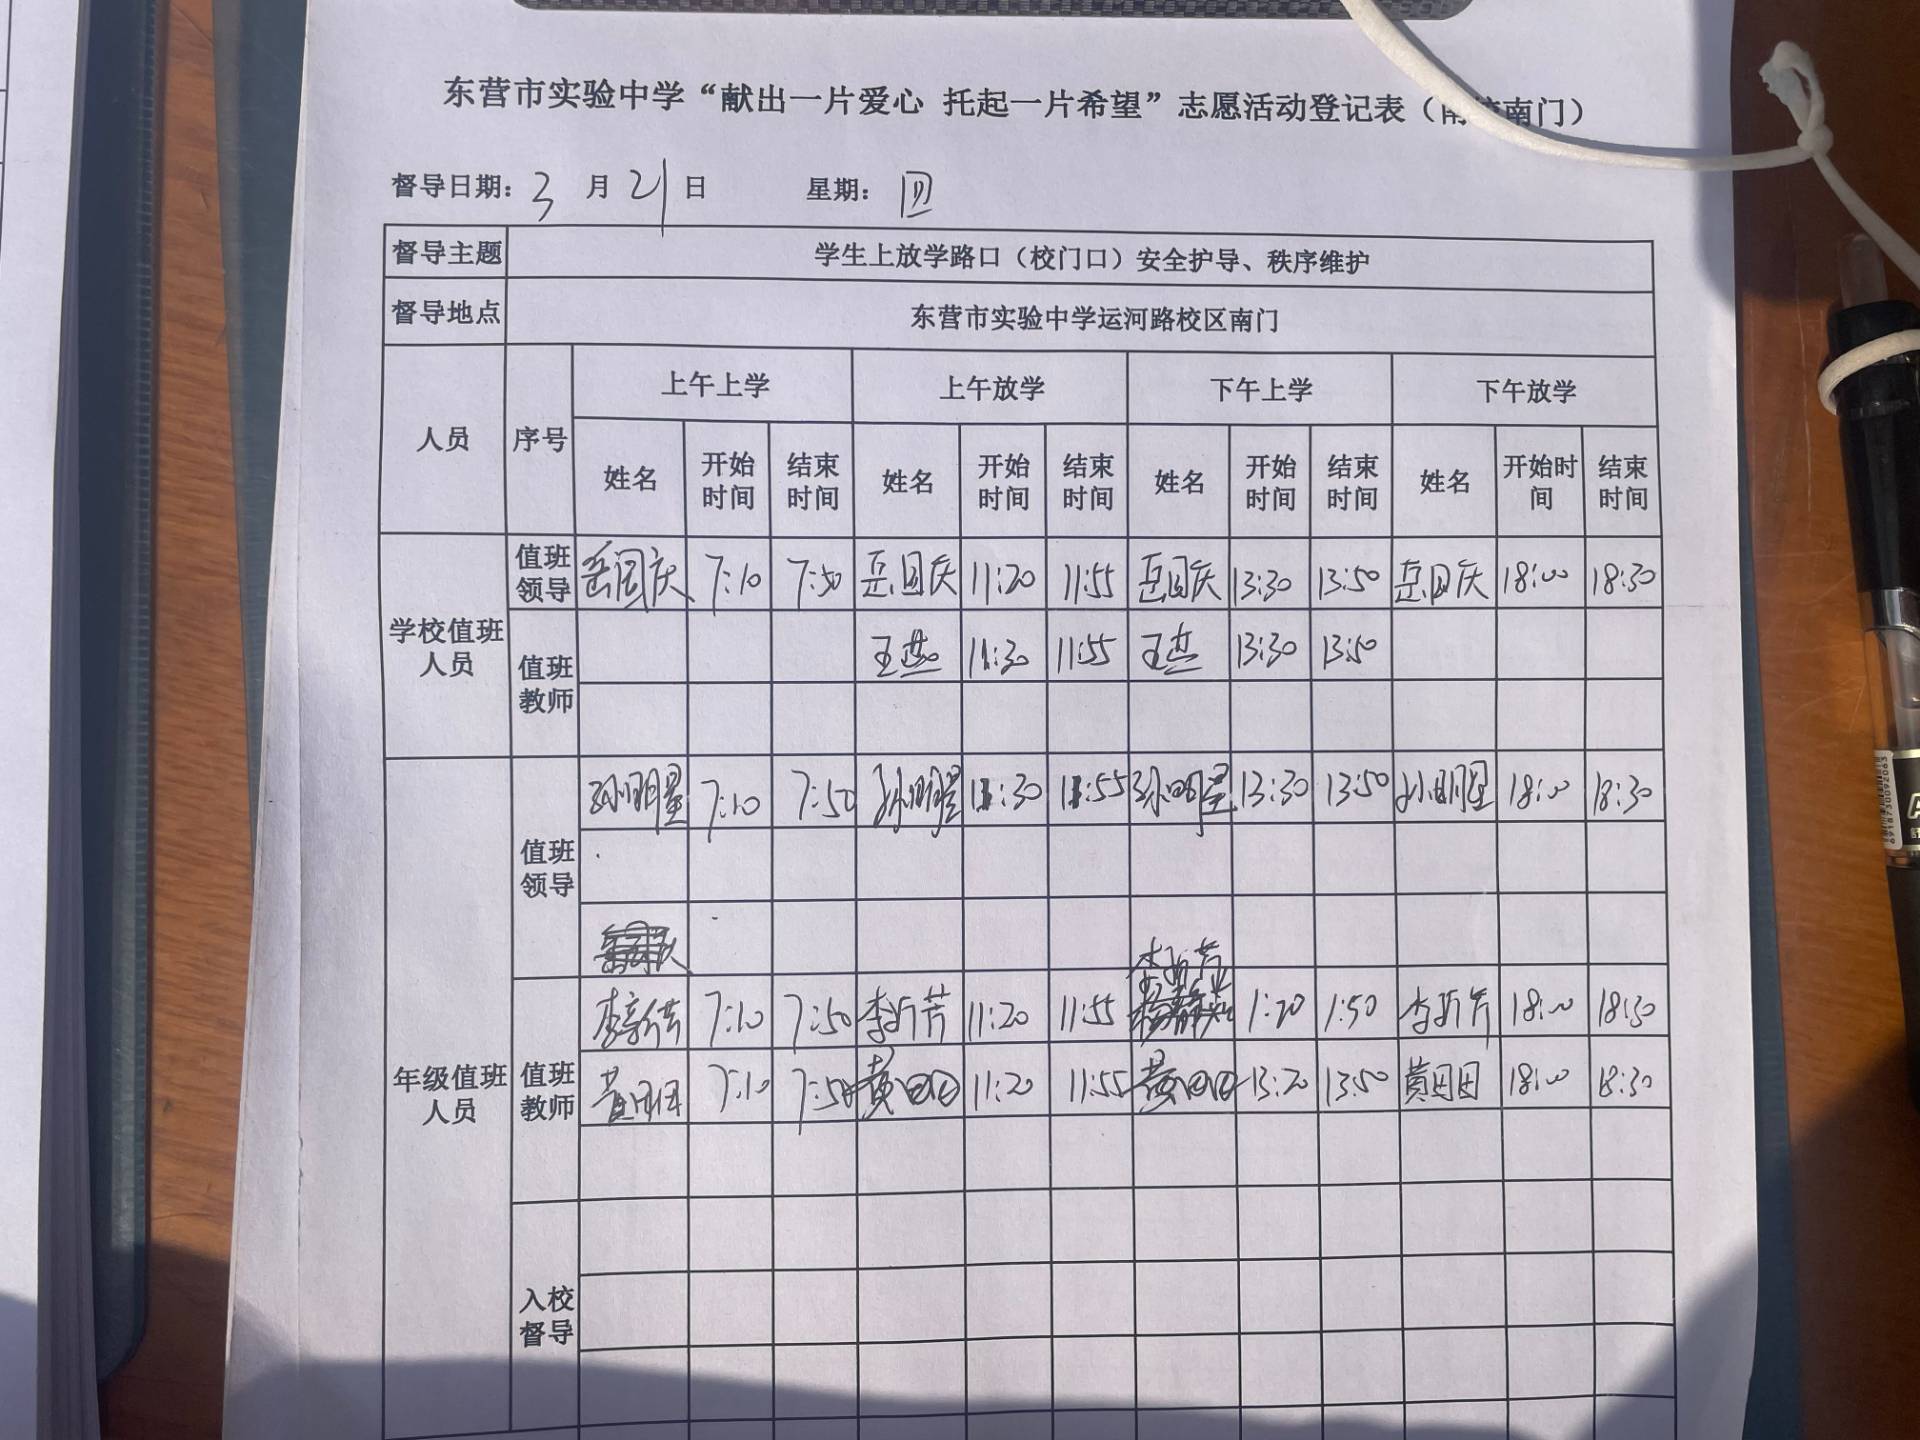 东营市实验中学“献出一片爱心 托起一片希望”志愿活动登记表（南校南门）
督导日期：3 月 21 日 星期：四
督导主题 学生上放学路口（校门口）安全护导、秩序维护
督导地点 东营市实验中学运河路校区南门
人员 序号 上午上学 上午放学 下午上学 下午放学
姓名 开始时间 结束时间 姓名 开始时间 结束时间 姓名 开始时间 结束时间 姓名 开始时间 结束时间
学校值班人员 值班领导 岳国庆 7:10 7:50 岳国庆 11:20 11:55 岳国庆 13:30 13:50 岳国庆 18:00 18:30
值班教师 王燕 11:30 11:55 王燕 13:30 13:50
年级值班人员 值班领导 孙明星 7:10 7:50 孙明星 11:30 11:55 孙明星 13:30 13:50 孙明星 18:00 18:30
值班教师 李新芳 7:10 7:50 李新芳 11:20 11:55 李新芳 1:20 1:50 李新芳 18:00 18:30
黄团团 7:10 7:50 黄团团 11:20 11:55 黄团团 13:20 13:50 黄团团 18:00 18:30
入校督导